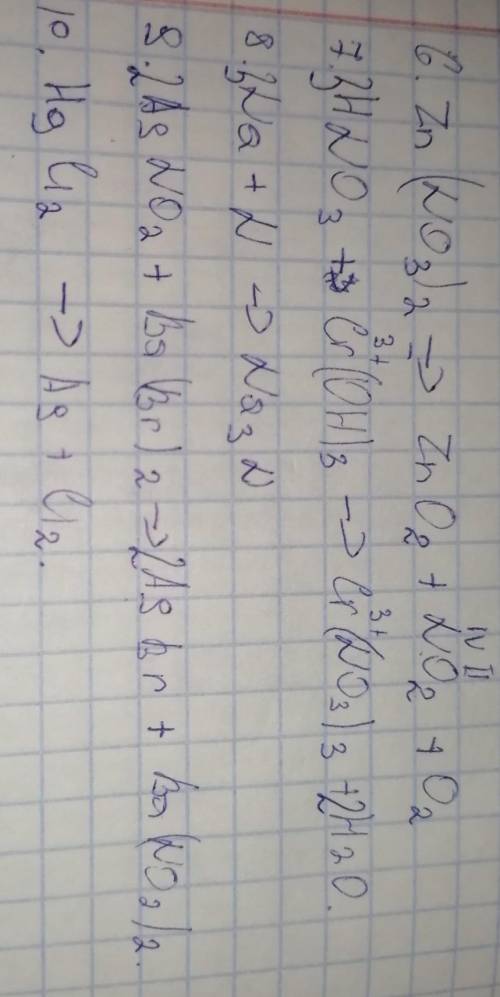 6. Zn(NO3)2 → ZnO2 + N^IV O^II 2 + O2
7. 3HNO3 + Cr^3+(OH)3 → Cr^3+(NO3)3 + 2H2O.
8. 3Na + N → Na3N
9. 2AgNO2 + Ba(Br)2 → 2AgBr + Ba(NO2)2.
10. HgCl2 → Ag + Cl2.